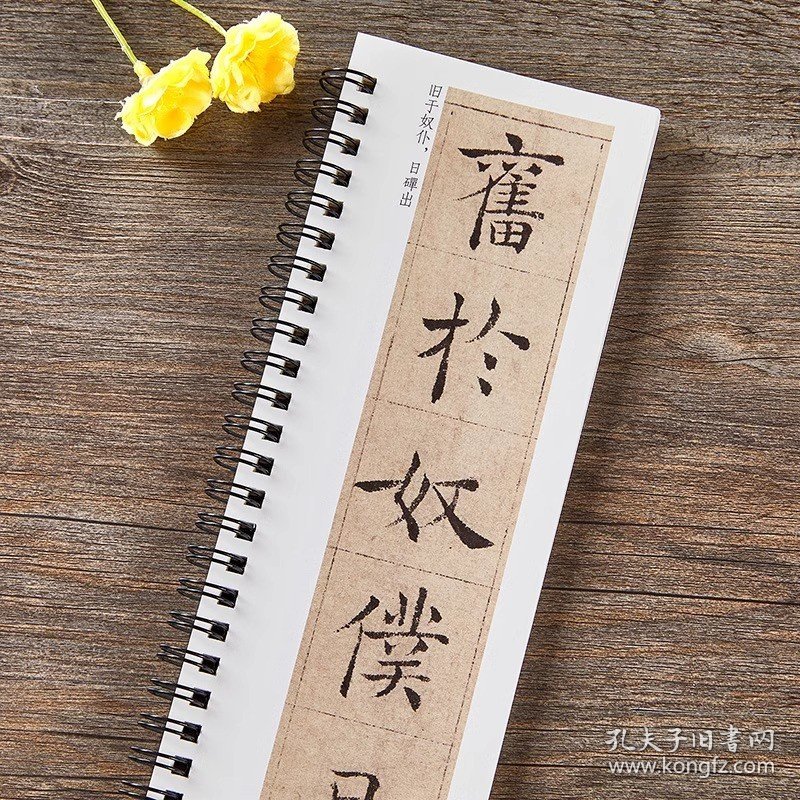 旧于奴仆，日磾出
舊
於
奴
僕
日
孔夫子旧书网
www.kongfz.com